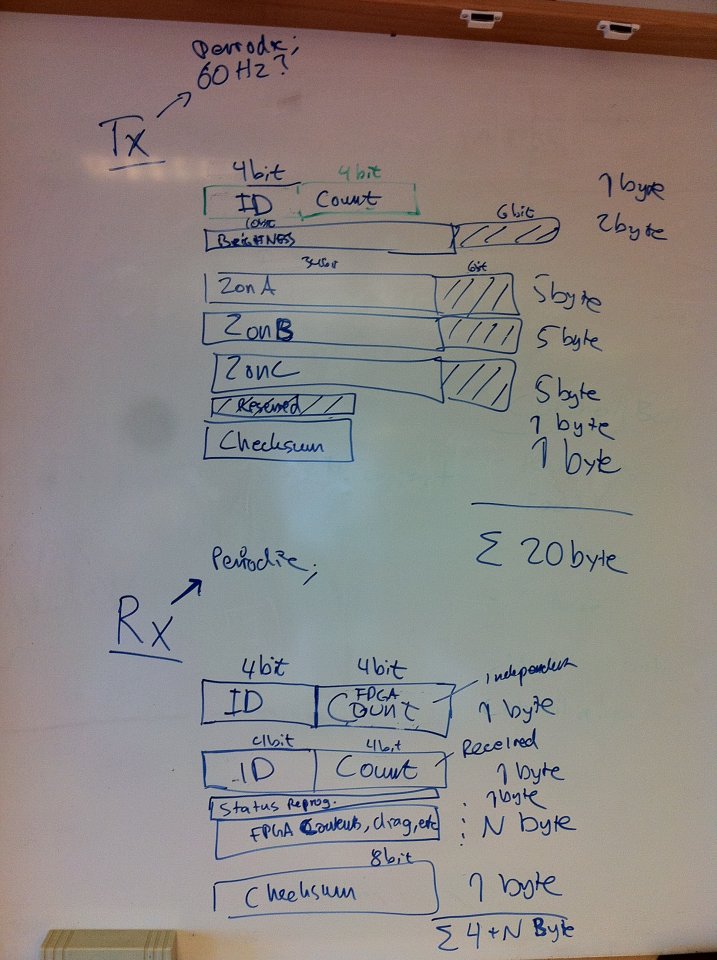 Periodic;
60Hz?
Tx
4bit 4bit
ID Count 1 byte
10bit 6bit
BRIGHTNESS 2byte
34bit 6bit
ZonA 5byte
ZonB 5byte
ZonC 5byte
Reserved 1 byte
Checksum 1 byte
Σ 20byte
Periodic;
Rx
4bit 4bit
ID FPGA Count Independent 1 byte
4bit 4bit Received
ID Count 1 byte
Status Reprog. 1byte
FPGA etc N byte
8bit
Checksum 1 byte
Σ 4+N Byte